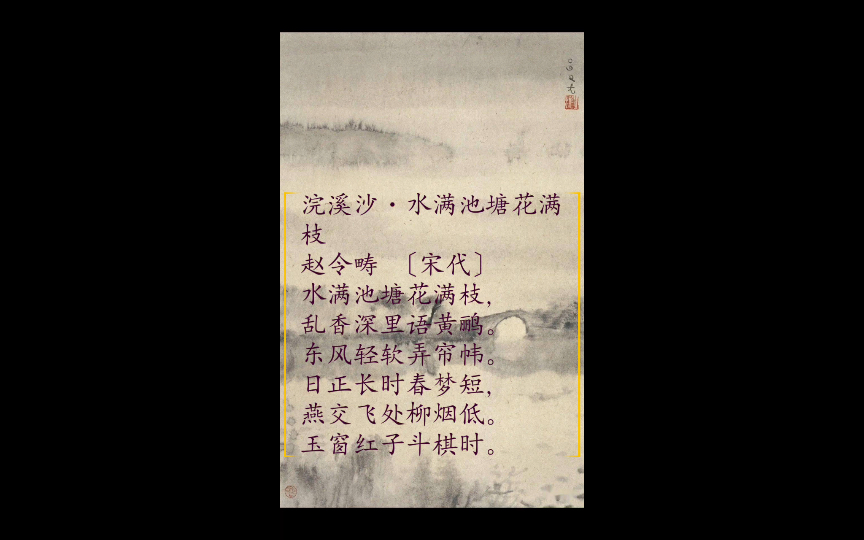 浣溪沙·水满池塘花满
枝
赵令畤 〔宋代〕
水满池塘花满枝，
乱香深里语黄鹂。
东风轻软弄帘帏。
日正长时春梦短，
燕交飞处柳烟低。
玉窗红子斗棋时。